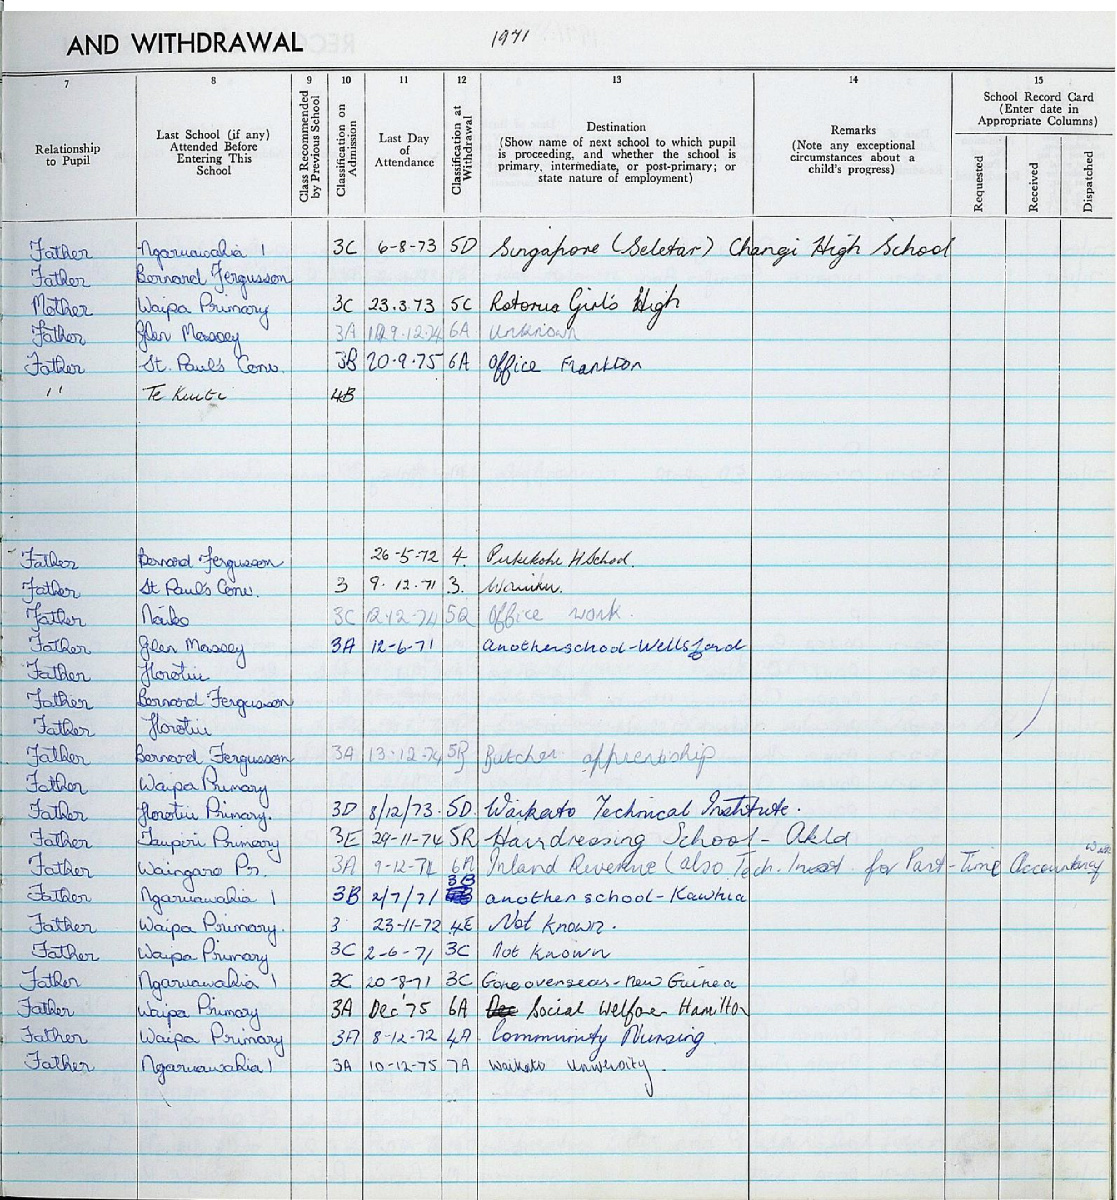 AND WITHDRAWAL 1971
7 8 9 10 11 12 13 14 15
Relationship to Pupil
Last School (if any) Attended Before Entering This School
Class Recommended by Previous School
Classification on Admission
Last Day of Attendance
Classification at Withdrawal
Destination (Show name of next school to which pupil is proceeding, and whether the school is primary, intermediate, or post-primary; or state nature of employment)
Remarks (Note any exceptional circumstances about a child's progress)
School Record Card (Enter date in Appropriate Columns)
Requested Received Dispatched
Father Ngaruawahia 1 3C 6-8-73 5D Singapore (Seletar) Changi High School
Father Bernard Fergusson
Mother Waipa Primary 3C 23.3.73 5C Rotorua Girl's High
Father Glen Massey 3A 6A Unknown
Father St. Paul's Conv. 3B 20-9-75 6A Office Frankton
" Te Kuiti 4B
Father Bernard Fergusson 26-5-72 4. Pukekohe H School.
Father St Paul's Conv. 3 9.12.71 3. Waiuku.
Father 3C 12-12-74 Office work.
Father Glen Massey 3A 12-6-71 another school-Wellsford
Father Horotiu
Father Bernard Fergusson
Father Horotiu
Father Bernard Fergusson 3A 13-12-74 5R Butcher
Father Waipa Primary
Father Horotiu Primary. 3D 8/12/73. 5D. Waikato Technical Institute.
Father Taupiri Primary 3E 29-11-74 5R Hairdressing School - Akld
Father Waingaro Pr. 3A 6A Inland Revenue (also Tech. Inst for Part-Time Accountancy
Father Ngaruawahia 1 3B 2/7/71 3B another school-Kawhia
Father Waipa Primary. 3 23-11-72 4E Not Known.
Father Waipa Primary 3C 2-6-71 3C Not Known
Father Ngaruawahia 1 3C 20-8-71 3C Gone overseas-New Guinea
Father Waipa Primary 3A Dec '75 6A Social Welfare Hamilton
Father Waipa Primary 3A 8-12-72 4A Community Nursing.
Father Ngaruawahia 1 3A 10-12-75 7A Waikato University.